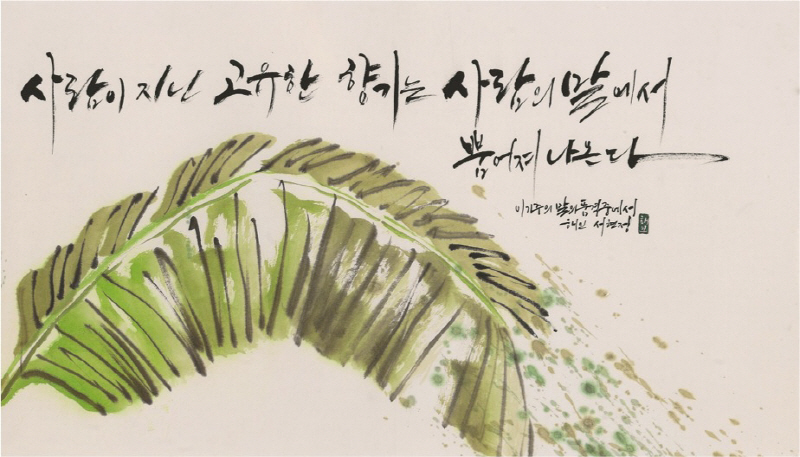 사람이 지닌 고유한 향기는 사람의 말에서
뿜어져 나온다
이기주의 말의 품격 중에서
서현정